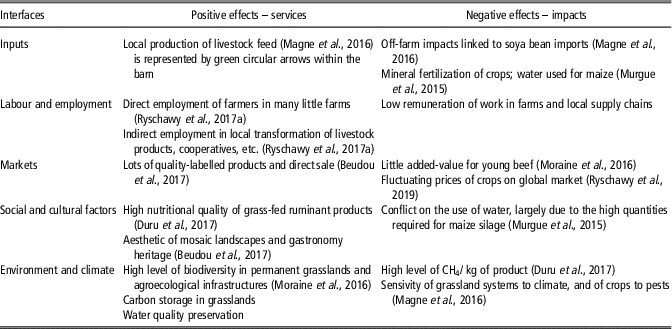 Interfaces Positive effects – services Negative effects – impacts
Inputs Local production of livestock feed (Magne et al., 2016) Off-farm impacts linked to soya bean imports (Magne et al.,
is represented by green circular arrows within the 2016)
barn Mineral fertilization of crops; water used for maize (Murgue
et al., 2015)
Labour and employment Direct employment of farmers in many little farms Low remuneration of work in farms and local supply chains
(Ryschawy et al., 2017a)
Indirect employment in local transformation of livestock
products, cooperatives, etc. (Ryschawy et al., 2017a)
Markets Lots of quality-labelled products and direct sale (Beudou Little added-value for young beef (Moraine et al., 2016)
et al., 2017) Fluctuating prices of crops on global market (Ryschawy et al.,
2019)
Social and cultural factors High nutritional quality of grass-fed ruminant products Conflict on the use of water, largely due to the high quantities
(Duru et al., 2017) required for maize silage (Murgue et al., 2015)
Aesthetic of mosaic landscapes and gastronomy
heritage (Beudou et al., 2017)
Environment and climate High level of biodiversity in permanent grasslands and High level of CH₄/ kg of product (Duru et al., 2017)
agroecological infrastructures (Moraine et al., 2016) Sensivity of grassland systems to climate, and of crops to pests
Carbon storage in grasslands (Magne et al., 2016)
Water quality preservation